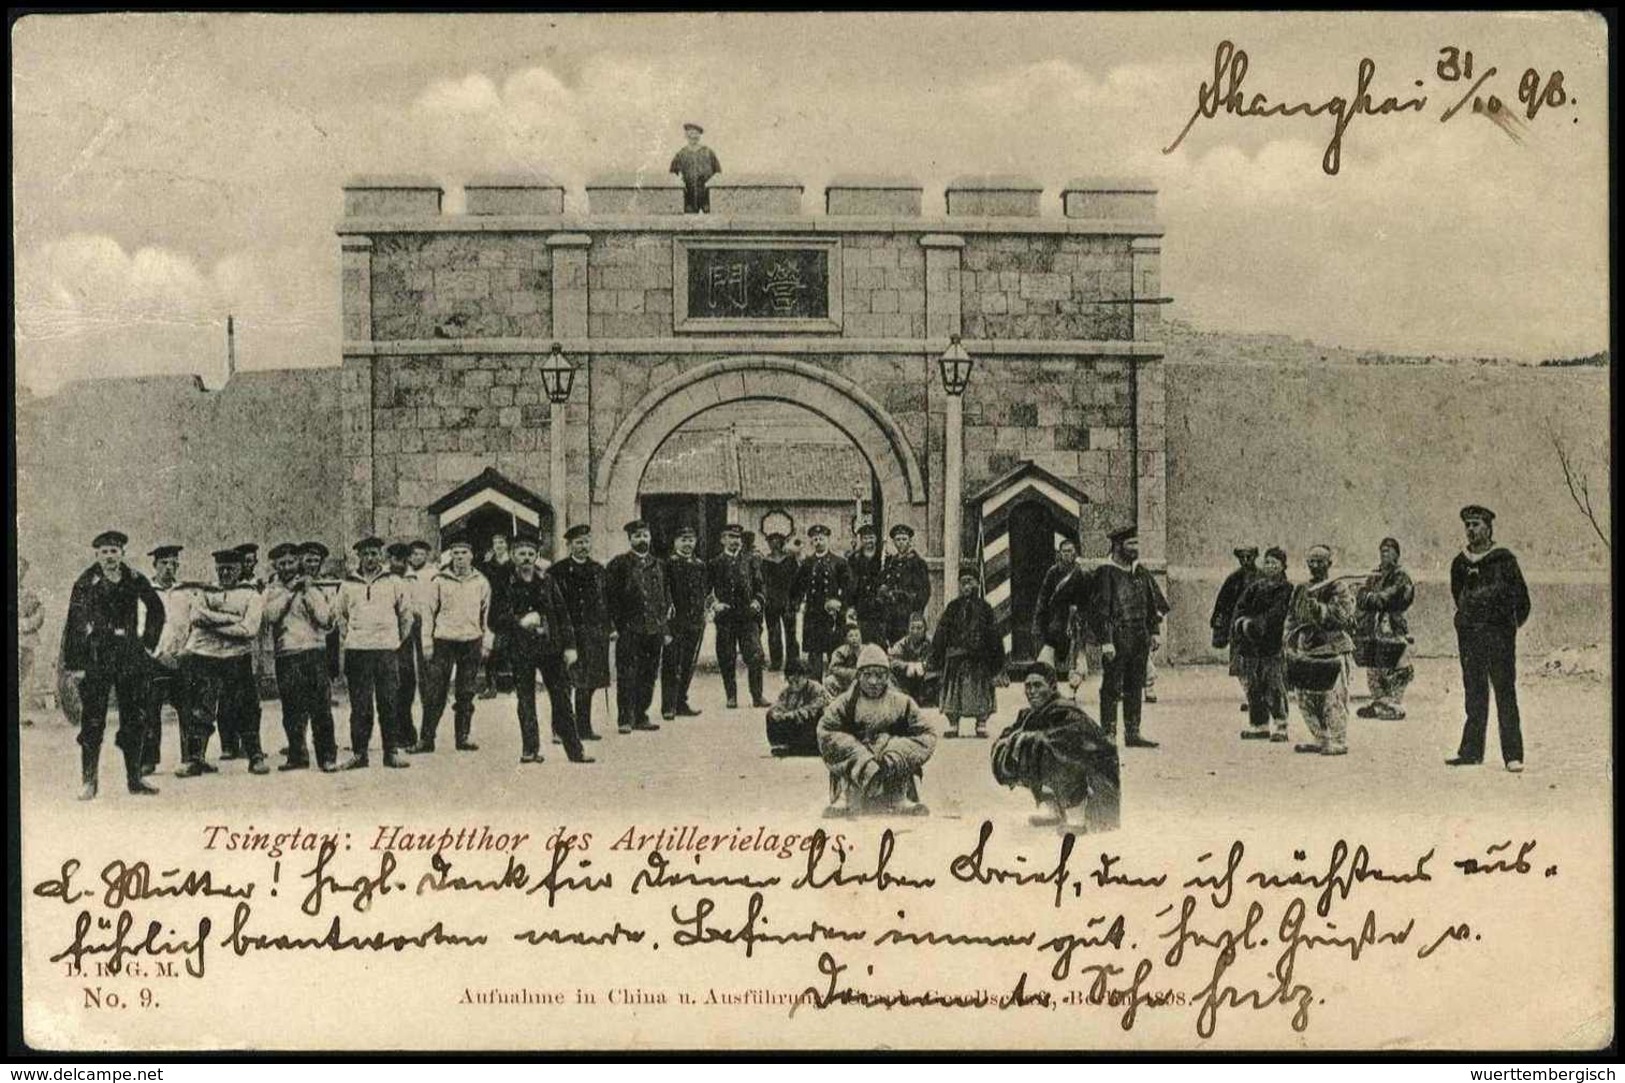 Shanghai 31/10 98.
門 營
Tsingtau: Hauptthor des Artillerielagers.
L. Mutter! Herzl. Dank für Deinen lieben Brief, den ich nächstens aus-
führlich beantworten werde. Befinden immer gut. Herzl. Grüße v.
D. R. G. M.
Deinem tr. Sohn Fritz.
No. 9.
Aufnahme in China u. Ausführung: Graph. Gesellschaft, Berlin 1898.
www.delcampe.net
wuerttembergisch